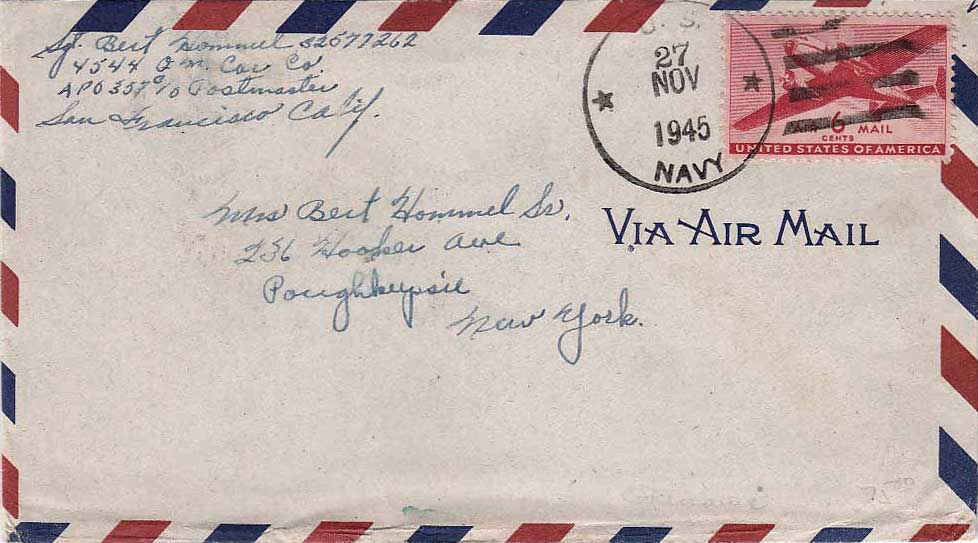 Sgt. Bert Hommel 32577262
4544 Q.M. Car Co.
APO 357 c/o Postmaster
San Francisco Calif.
U. S.
27
NOV
1945
NAVY
AIR 6 MAIL
CENTS
UNITED STATES OF AMERICA
Mrs Bert Hommel Sr.
236 Hooker Ave
Poughkeepsie
New York.
VIA AIR MAIL